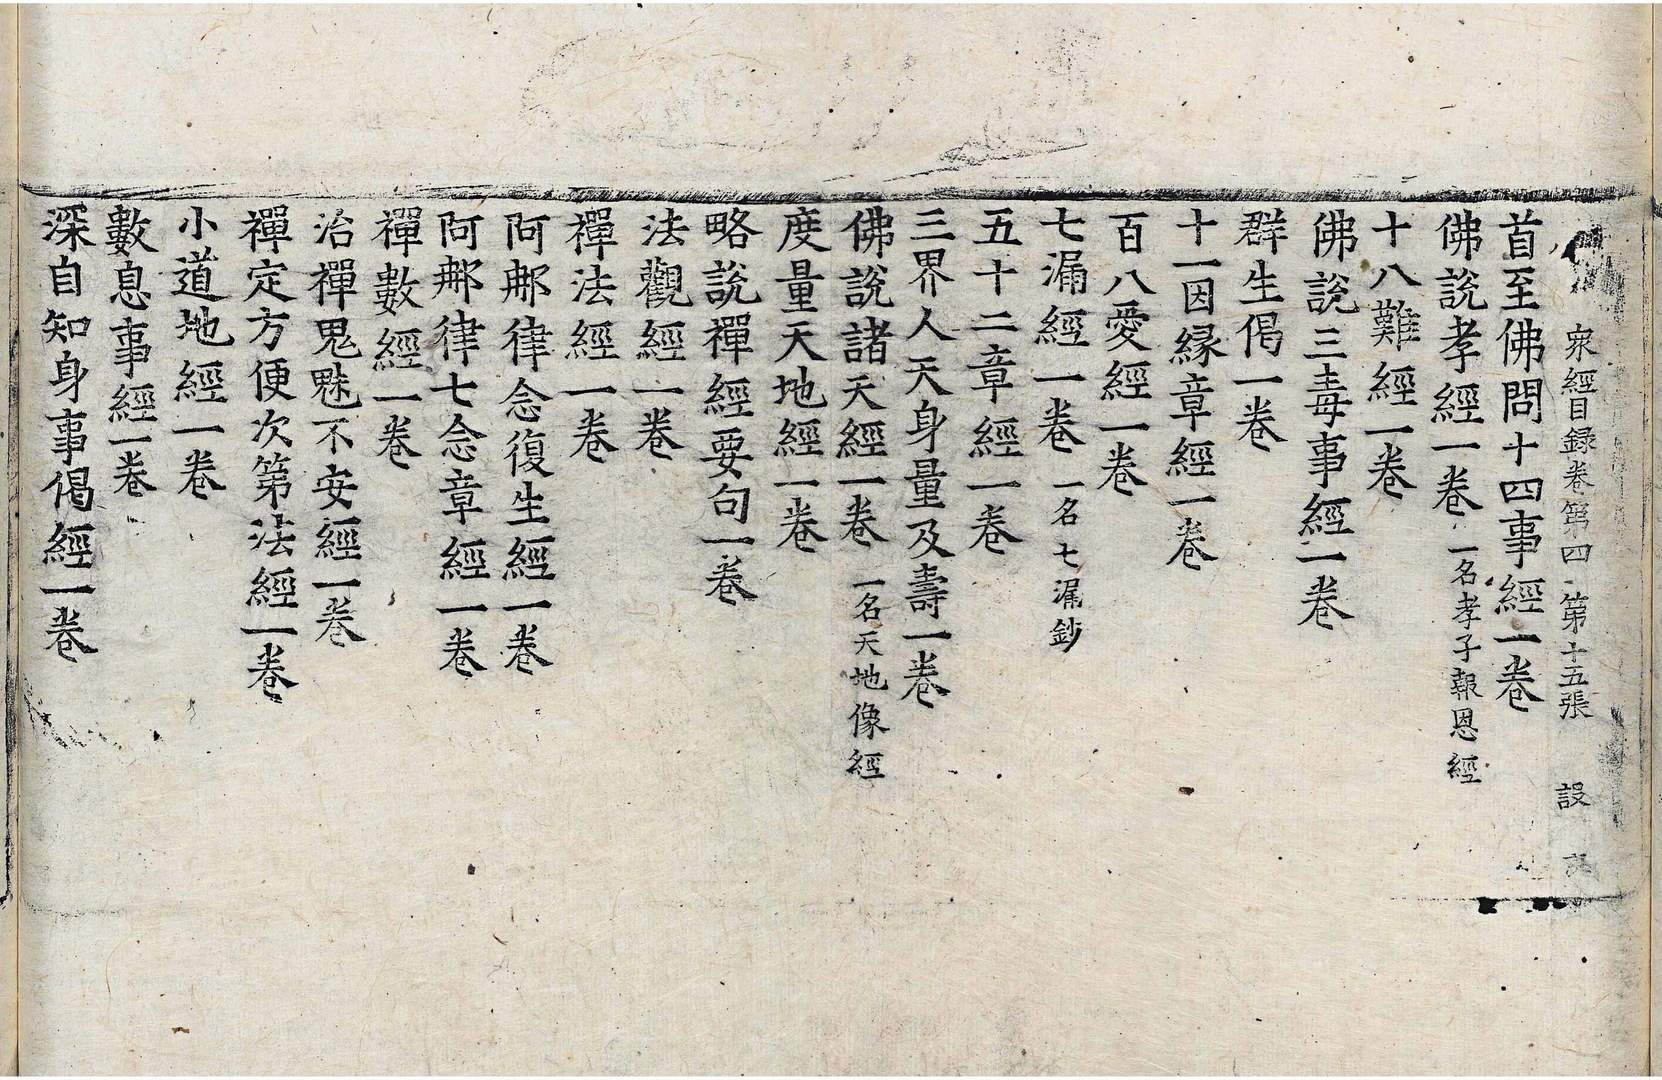 衆經目録卷第四 第十五張 設
首至佛問十四事經一卷
佛說孝經一卷 一名孝子報恩經
十八難經一卷
佛說三毒事經一卷
群生偈一卷
十一因緣章經一卷
百八愛經一卷
七漏經一卷 一名七漏鈔
五十二章經一卷
三界人天身量及壽一卷
佛說諸天經一卷 一名天地像經
度量天地經一卷
略說禪經要句一卷
法觀經一卷
禪法經一卷
阿𨚗律念復生經一卷
阿𨚗律七念章經一卷
禪數經一卷
治禪鬼魅不安經一卷
禪定方便次第法經一卷
小道地經一卷
數息事經一卷
深自知身事偈經一卷